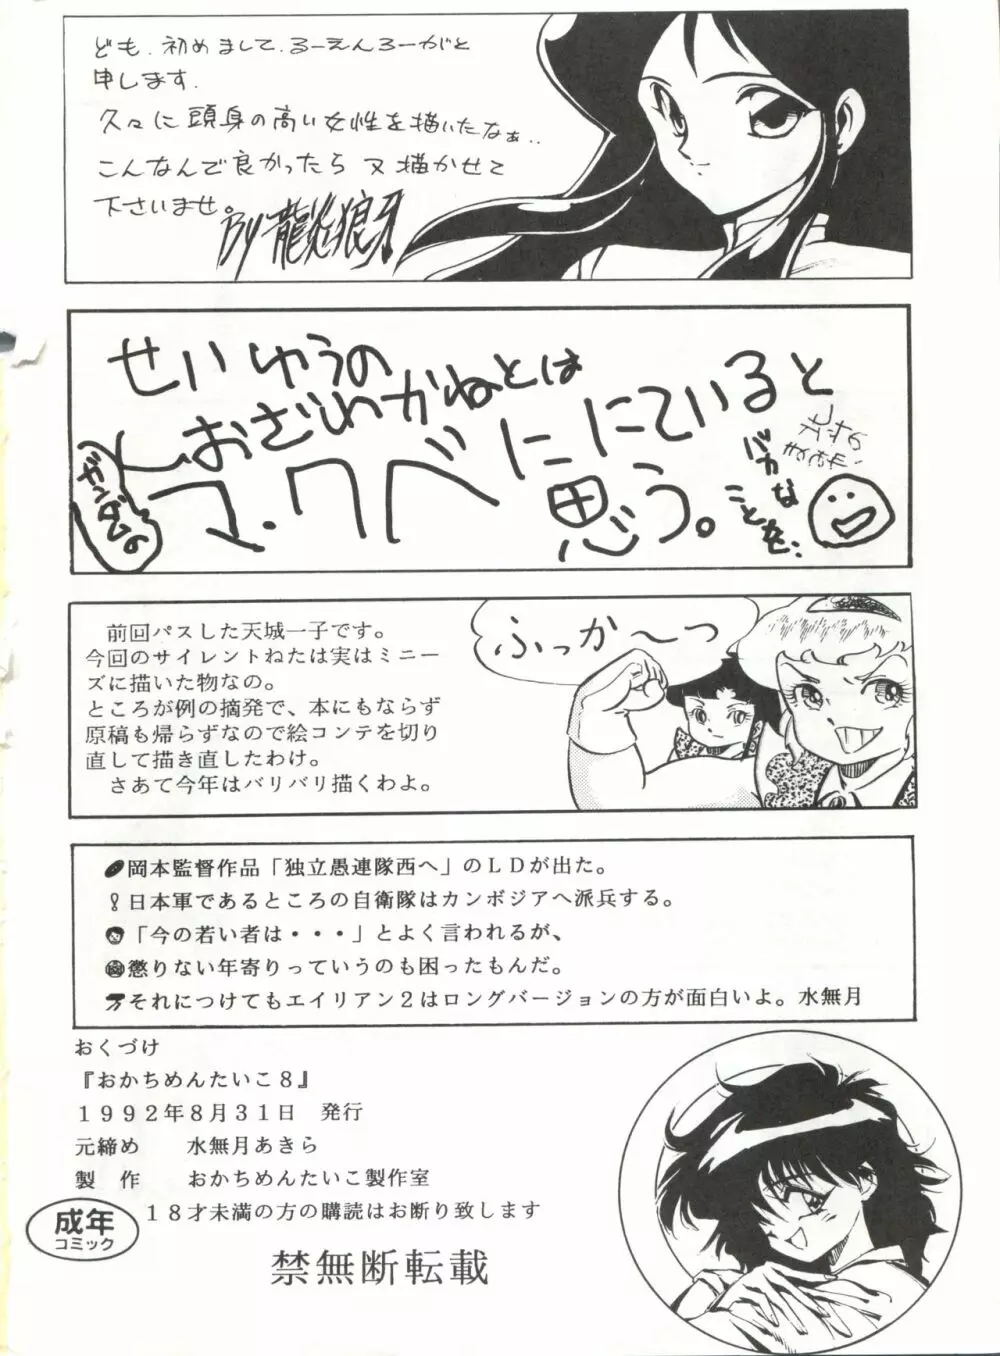 ども.初めまして.るーえんろーがと
申します.
久々に頭身の高い女性を描いたなぁ..
こんなんで良かったら又描かせて
下さいませ。
By 龍炎狼牙
せいゆうの
おざわかねとは
ガンダムの
マ・クベににていると
思う。
バカな
ことを..
前回パスした天城一子です。
今回のサイレントねたは実はミニー
ズに描いた物なの。
ところが例の摘発で、本にもならず
原稿も帰らずなので絵コンテを切り
直して描き直したわけ。
さあて今年はバリバリ描くわよ。
ふっか〜つ
岡本監督作品「独立愚連隊西へ」のＬＤが出た。
日本軍であるところの自衛隊はカンボジアへ派兵する。
「今の若い者は・・・」とよく言われるが、
懲りない年寄りっていうのも困ったもんだ。
それにつけてもエイリアン２はロングバージョンの方が面白いよ。水無月
おくづけ
『おかちめんたいこ８』
１９９２年８月３１日　発行
元締め　　水無月あきら
製　作　　おかちめんたいこ製作室
成年
コミック
１８才未満の方の購読はお断り致します
禁無断転載